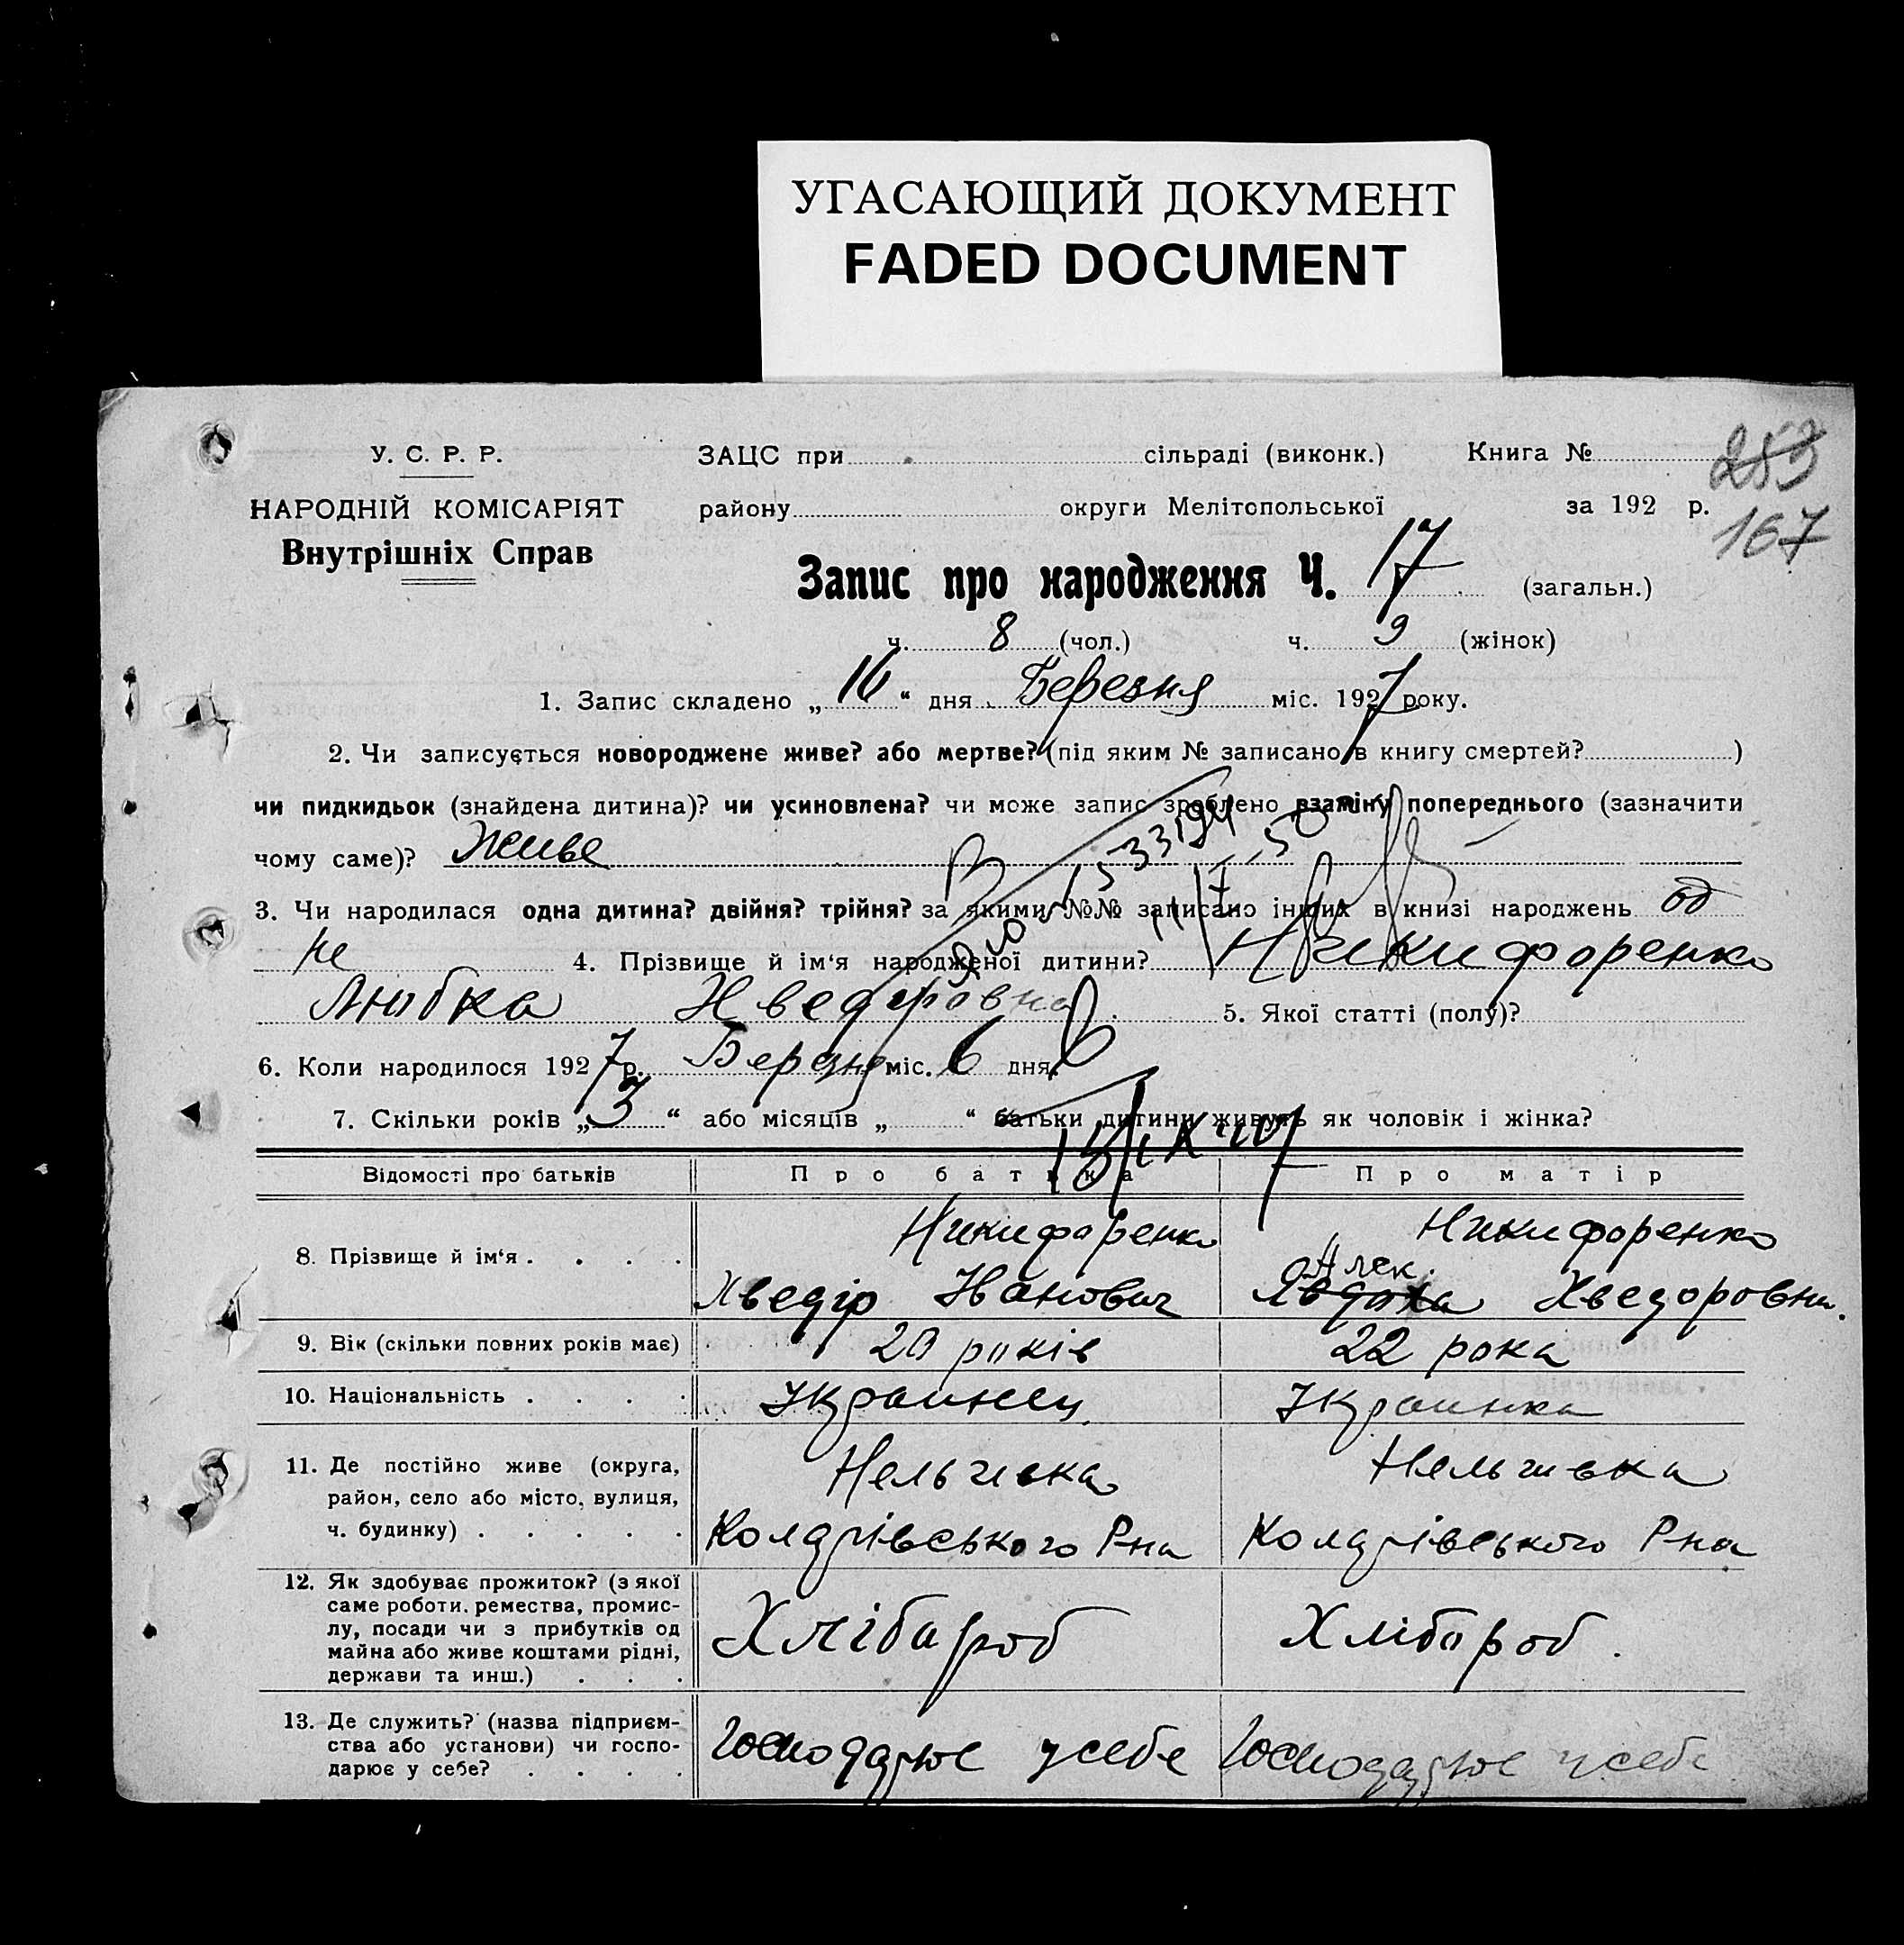 УГАСАЮЩИЙ ДОКУМЕНТ
FADED DOCUMENT
У. С. Р. Р.
НАРОДНІЙ КОМІСАРІЯТ
Внутрішніх Справ
ЗАЦС при сільраді (виконк.) Книга №
253
району округи Мелітопольської за 192 р.
167
Запис про народження Ч. 17 (загальн.)
ч. 8 (чол.) ч. 9 (жінок)
1. Запис складено „16“ дня Березня міс. 1927 року.
2. Чи записується новороджене живе? або мертве? (під яким № записано в книгу смертей? )
чи пидкидьок (знайдена дитина)? чи усиновлена? чи може запис зроблено взаміну попереднього (зазначити
чому саме)? Живе
3. Чи народилася одна дитина? двійня? трійня? за якими №№ записано інших в книзі народжень од
не 4. Прізвище й ім‘я народженої дитини? Никифоренко
Любка Хведоровна 5. Якої статті (полу)?
6. Коли народилося 1927 р. Березня міс. 6 дня.
7. Скільки років „3“ або місяців „ “ батьки дитини живуть як чоловік і жінка?
Відомості про батьків Про батька Про матір
8. Прізвище й ім‘я . . . . Никифоренко Никифоренко
Алек.
Хведір Иванович Явдоха Хведоровна.
9. Вік (скільки повних років має) 20 років 22 рока
10. Національність . . . . Украинец Украинка
11. Де постійно живе (округа, район, село або місто, вулиця, ч. будинку) . . . . .
Нельгивка Нельгивка
Колдрівського Р-на Колдрівського Р-на
12. Як здобуває прожиток? (з якої
саме роботи, ремества, промис-
лу, посади чи з прибутків од
майна або живе коштами рідні,
держави та инш.) . . .
Хлібароб Хлібароб.
13. Де служить? (назва підприєм-
ства або установи) чи госпо-
дарює у себе? . . . .
Господарює усебе Господарює усебе